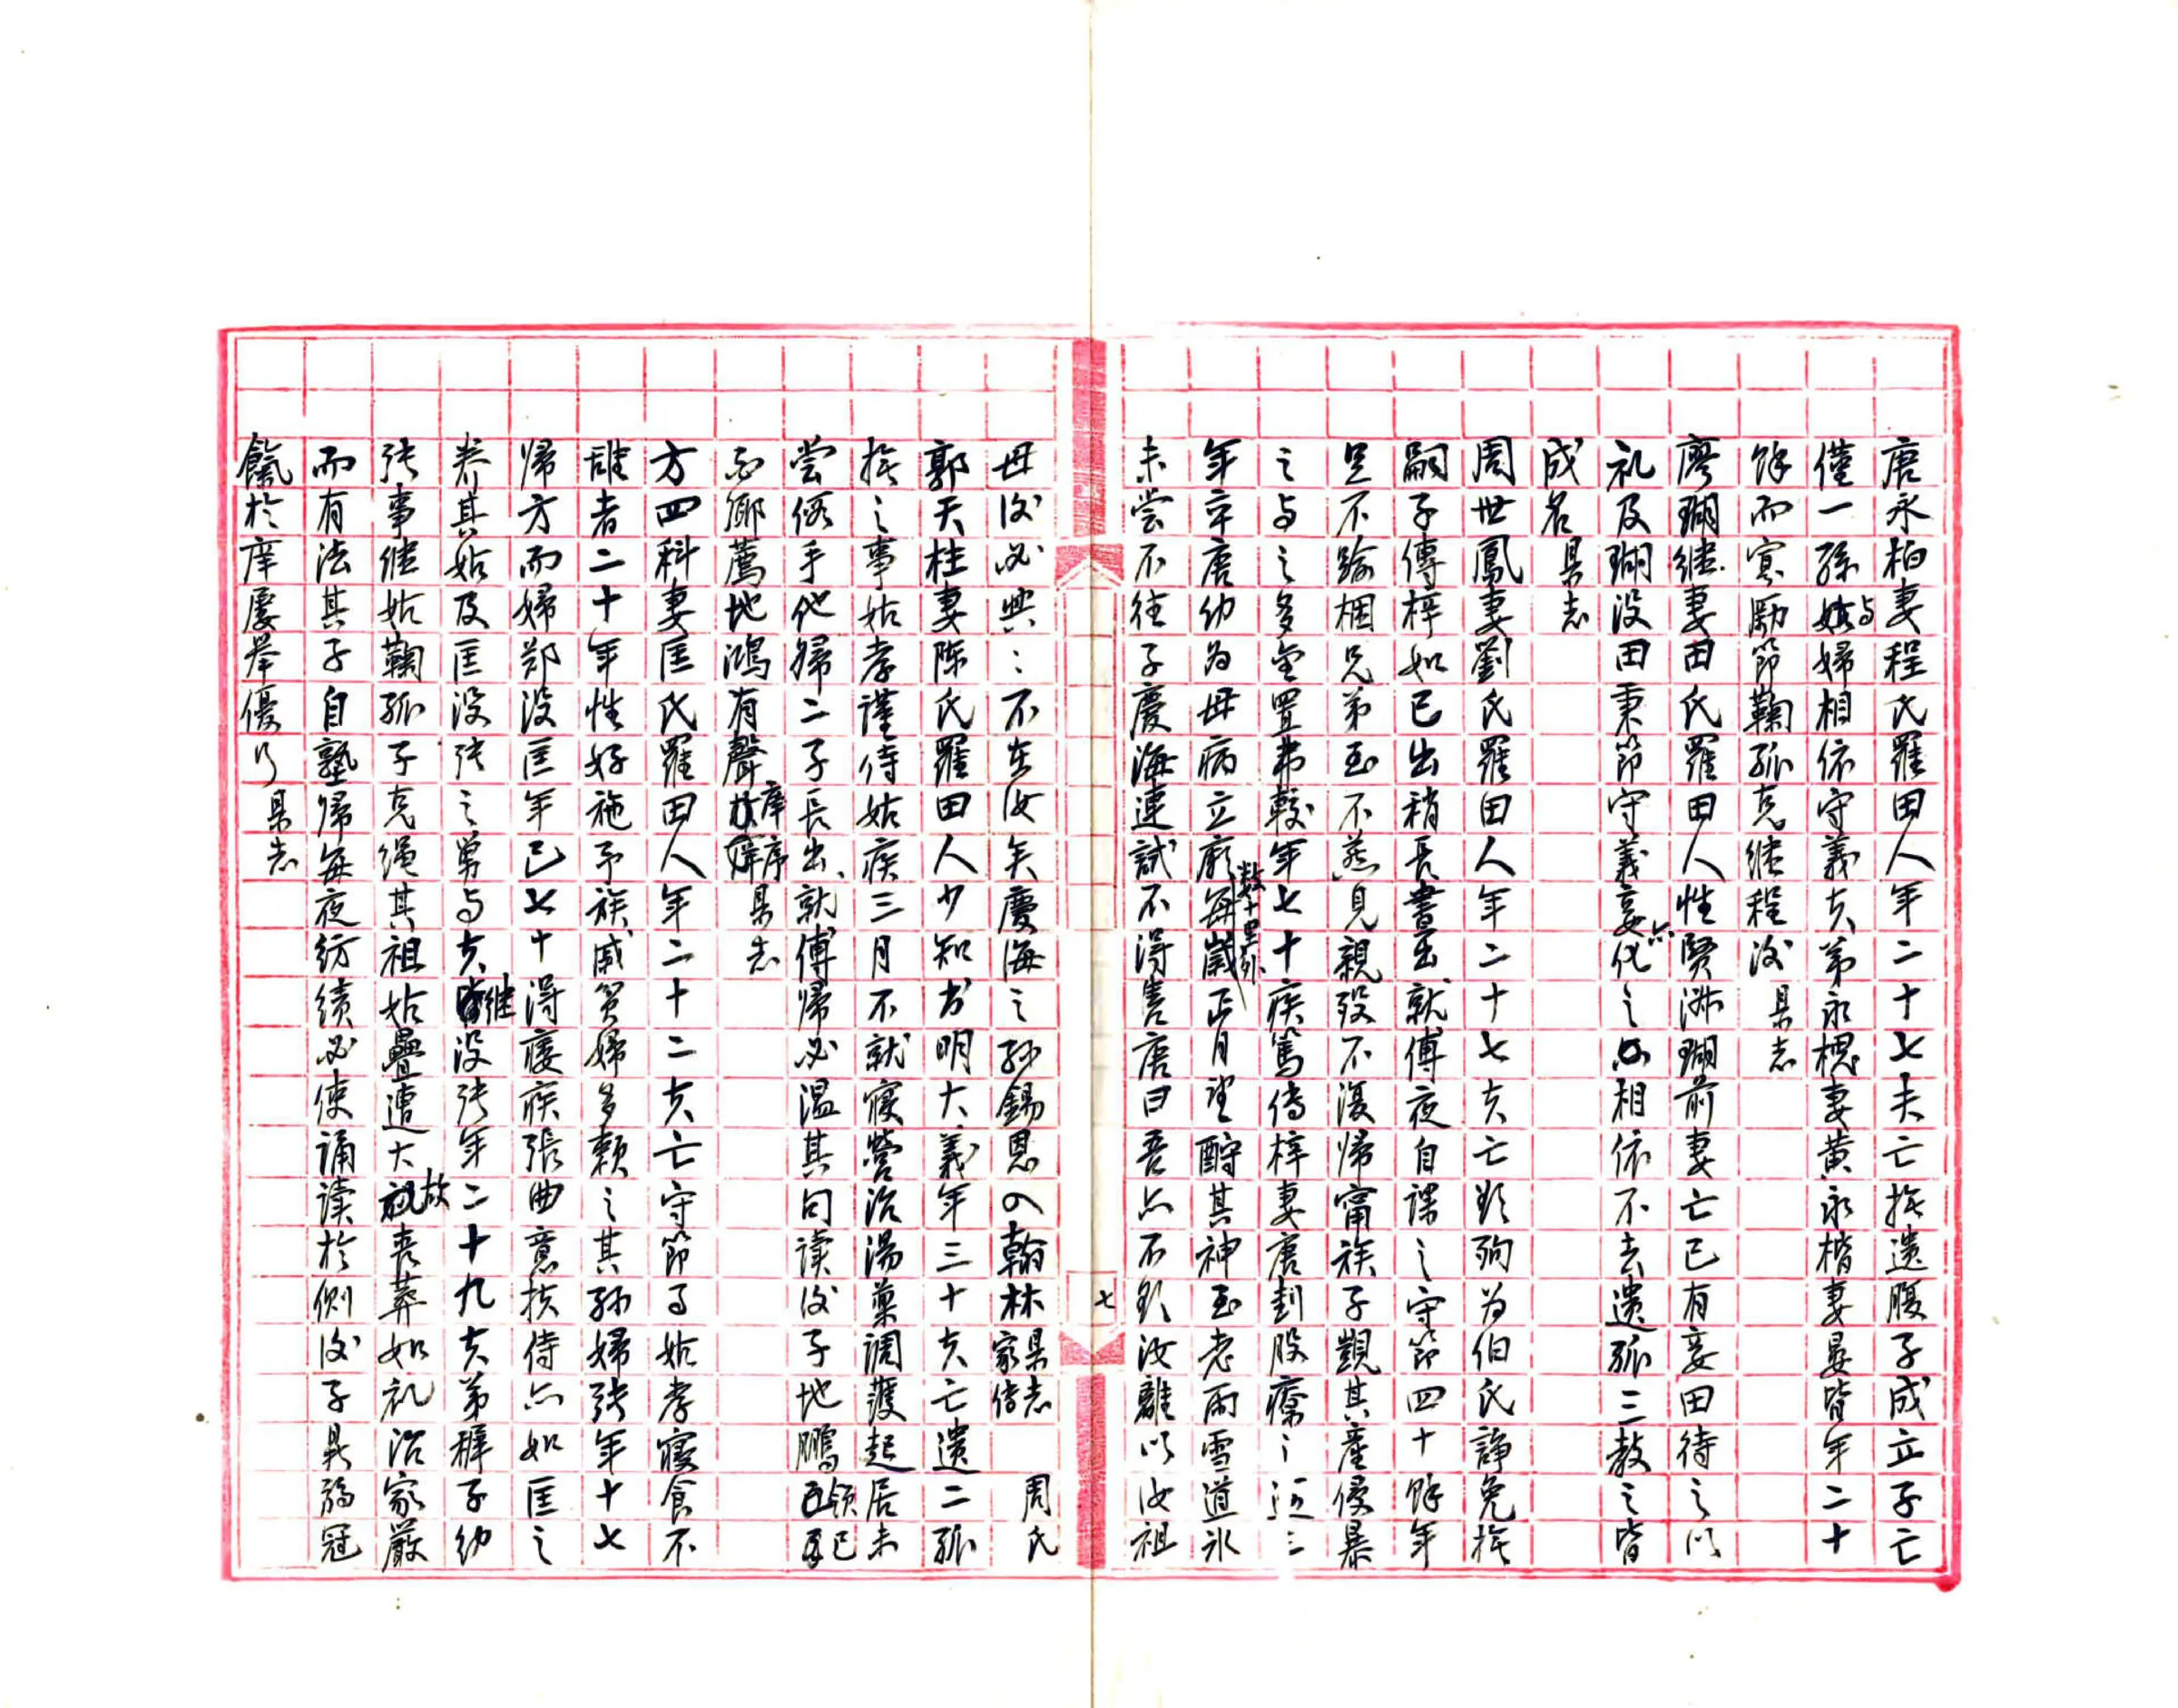 唐永柏妻程氏羅田人年二十七夫亡撫遺腹子成立子亡
僅一孫與姑婦相依守義夫弟永槐妻黄永楷妻晏皆年二十
餘而寡勵節鞠孤克繼程後 県志
廖瑚継妻田氏羅田人性賢淑瑚前妻亡已有妾田待之以
礼及瑚没田秉節守義妾亦化之相依不去遺孤三教之皆
成名 県志
周世鳳妻劉氏羅田人年二十七夫亡欲殉为伯氏諍免撫
嗣子傳梓如已出稍長書出就傅夜自課之守節四十餘年
足不踰梱兄弟至不燕見親殁不復歸甯族子覬其産侵暴
之与之多金置弗較年七十疾篤傳梓妻唐刲股療之近三
年卒唐幼为母病立願每歲數十里外正月望酹其神至老雨雪道氷
未嘗不往子慶海連試不得售唐曰吾亦不欲汝離以汝祖
母後必興興不在汝矣慶海之孙錫恩入翰林 県志家傳 周氏
郭天柱妻陈氏羅田人少知书明大義年三十夫亡遺二孤
撫之事姑孝謹侍姑疾三月不就寢營治湯藥調護起居未
嘗假手他婦二子長出就傅歸必温其句读後子地鵬領
鄉薦地鴻有聲庠序 県志
方四科妻匡氏羅田人年二十二夫亡守節事姑孝寢食不
離者二十年性好施予族戚贫婦多頼之其孙婦張年十七
歸方而婦郑没匡年已七十得痿疾張曲意扶侍亦如匡之
养其姑及匡没張之舅与夫継没張年二十九夫弟穉子幼
張事继姑鞠孤子克绳其祖姑疊遭大故喪葬如礼治家嚴
而有法其子自塾歸每夜纺績必使誦读於側後子昊弱冠
餼於庠屢举優行 県志
七